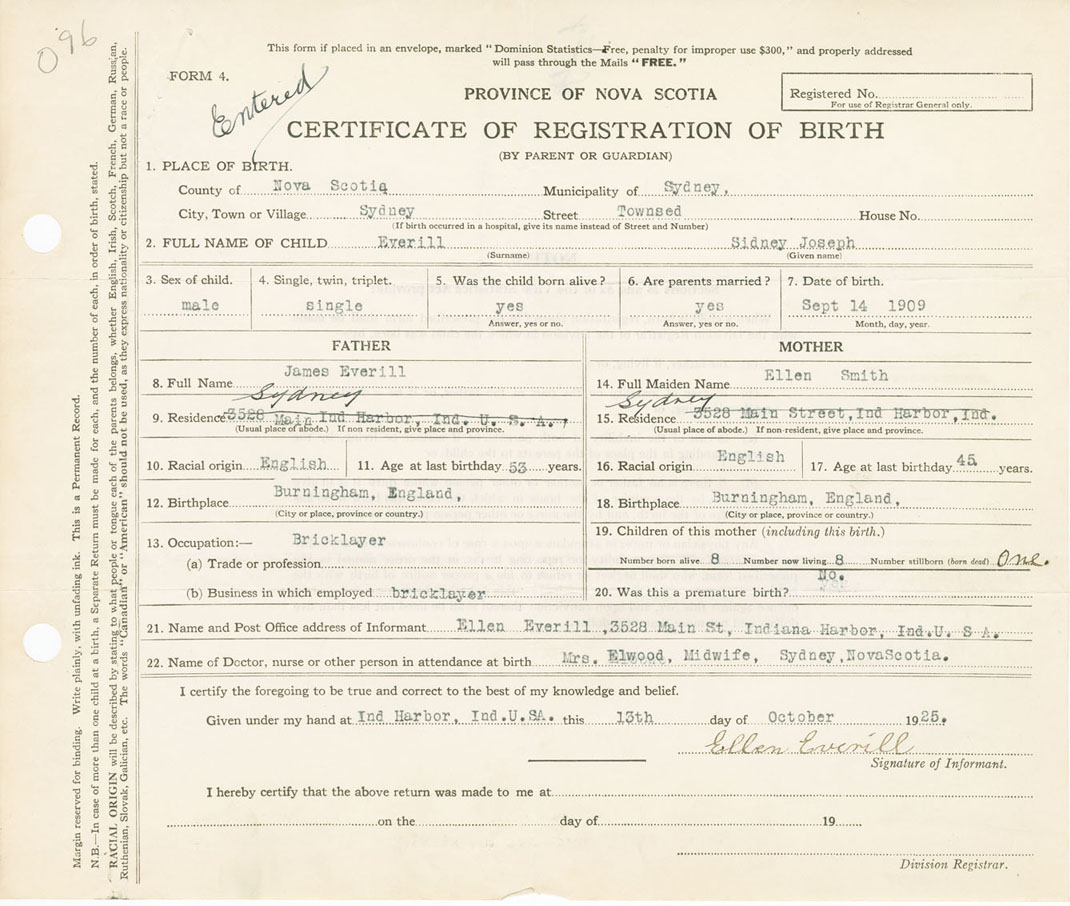 096
This form if placed in an envelope, marked "Dominion Statistics—Free, penalty for improper use $300," and properly addressed
will pass through the Mails "FREE."
FORM 4.
Entered
PROVINCE OF NOVA SCOTIA
Registered No.
For use of Registrar General only.
CERTIFICATE OF REGISTRATION OF BIRTH
(BY PARENT OR GUARDIAN)
1. PLACE OF BIRTH.
County of Nova Scotia Municipality of Sydney,
City, Town or Village Sydney Street Townsed House No.
(If birth occurred in a hospital, give its name instead of Street and Number)
2. FULL NAME OF CHILD Everill Sidney Joseph
(Surname) (Given name)
3. Sex of child. 4. Single, twin, triplet. 5. Was the child born alive? 6. Are parents married? 7. Date of birth.
male single yes yes Sept 14 1909
Answer, yes or no. Answer, yes or no. Month, day, year.
FATHER
8. Full Name James Everill
Sydney
9. Residence 3528 Main Ind Harbor, Ind. U. S. A.,
(Usual place of abode.) If non resident, give place and province.
10. Racial origin English 11. Age at last birthday 53 years.
12. Birthplace Burningham, England,
(City or place, province or country.)
13. Occupation:— Bricklayer
(a) Trade or profession
(b) Business in which employed bricklayer
MOTHER
14. Full Maiden Name Ellen Smith
Sydney
15. Residence 3528 Main Street, Ind Harbor, Ind.
(Usual place of abode.) If non-resident, give place and province.
16. Racial origin English 17. Age at last birthday 45 years.
18. Birthplace Burningham, England,
(City or place, province or country.)
19. Children of this mother (including this birth.)
Number born alive 8 Number now living 8 Number stillborn (born dead) One.
No.
20. Was this a premature birth?
21. Name and Post Office address of Informant Ellen Everill ,3528 Main St, Indiana Harbor, Ind.U. S A.
22. Name of Doctor, nurse or other person in attendance at birth Mrs. Elwood, Midwife, Sydney,NovaScotia.
I certify the foregoing to be true and correct to the best of my knowledge and belief.
Given under my hand at Ind Harbor, Ind.U.SA. this 13th day of October 1925.
Ellen Everill
Signature of Informant.
I hereby certify that the above return was made to me at
on the day of 19
Division Registrar.
Margin reserved for binding. Write plainly, with unfading ink. This is a Permanent Record.
N.B.—In case of more than one child at a birth, a Separate Return must be made for each, and the number of each, in order of birth, stated.
RACIAL ORIGIN will be described by stating to what people or tongue each of the parents belongs, whether English, Irish, Scotch, French, German, Russian,
Ruthenian, Slovak, Galician, etc. The words "Canadian" or "American" should not be used, as they express nationality or citizenship but not a race or people.